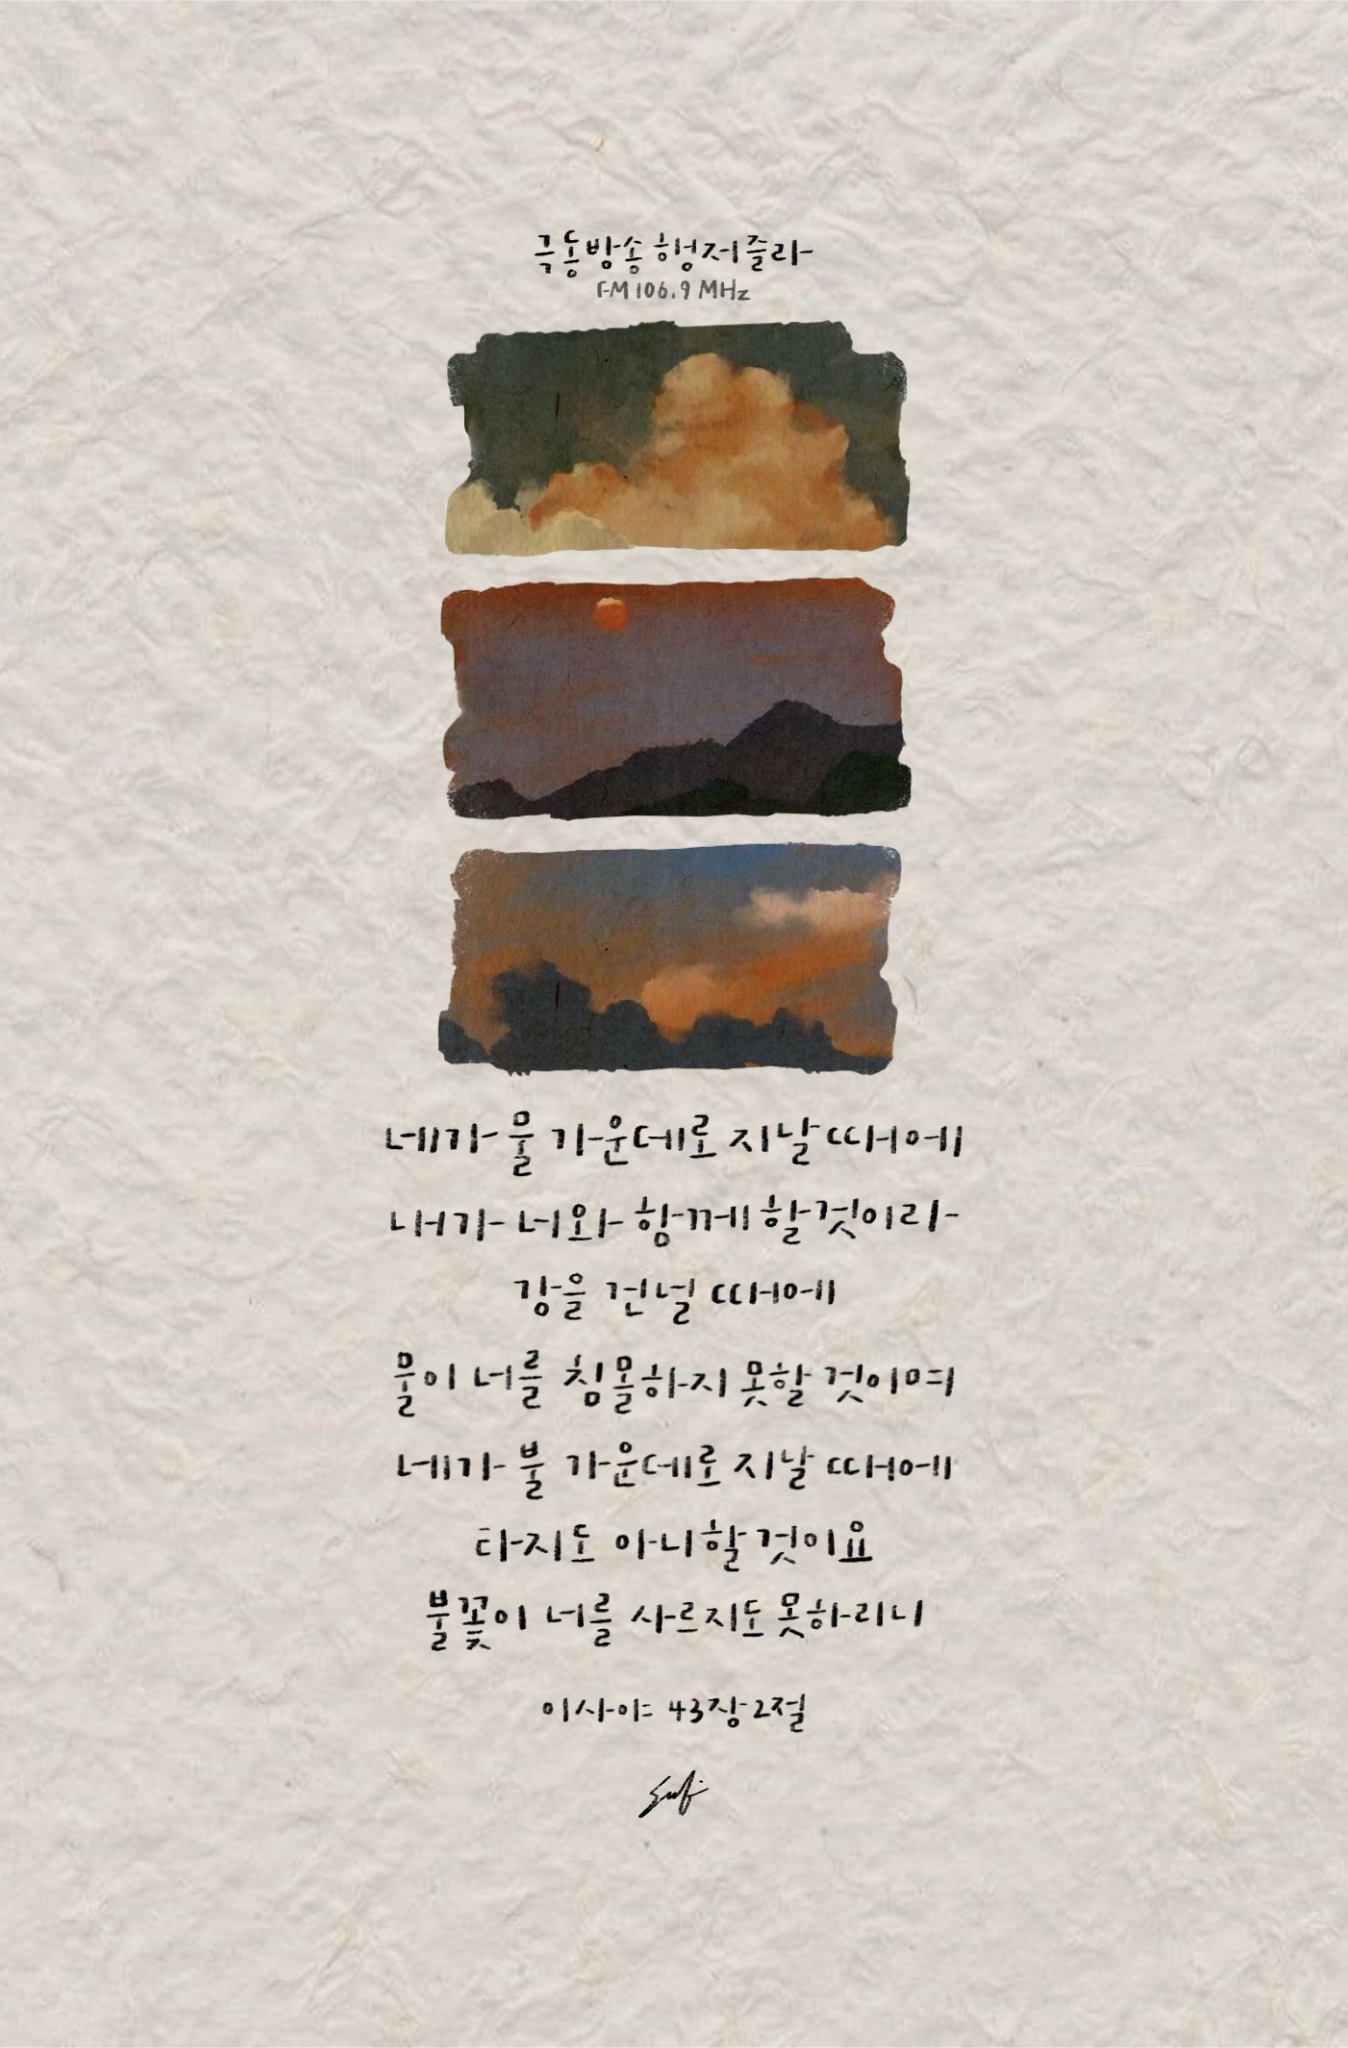 극동방송 행저즐라
FM 106.9 MHz
네가 물 가운데로 지날 때에
내가 너와 함께 할 것이라
강을 건널 때에
물이 너를 침몰하지 못할 것이며
네가 불 가운데로 지날 때에
타지도 아니할 것이요
불꽃이 너를 사르지도 못하리니
이사야 43장 2절